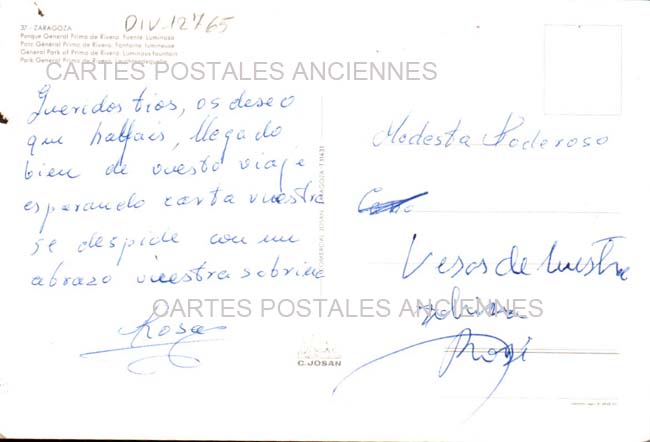 DIV-12765
37 - ZARAGOZA
Parque General Primo de Rivera. Fuente Luminosa
Parc Général Primo de Rivera. Fontaine lumineuse
General Park of Primo de Rivera. Luminous fountain
Park General Primo de Rivera. Leuchtendequelle
CARTES POSTALES ANCIENNES
Queridos tios, os deseo
que hallais, llegado
bien de vuestro viaje
esperando carta vuestra
se despide con un
abrazo vuestra sobrina
Rosa
COMERCIAL JOSAN ZARAGOZA
Modesta Poderoso
Vesos de vuestra
sobrina
Rosi
CARTES POSTALES ANCIENNES
C. JOSAN